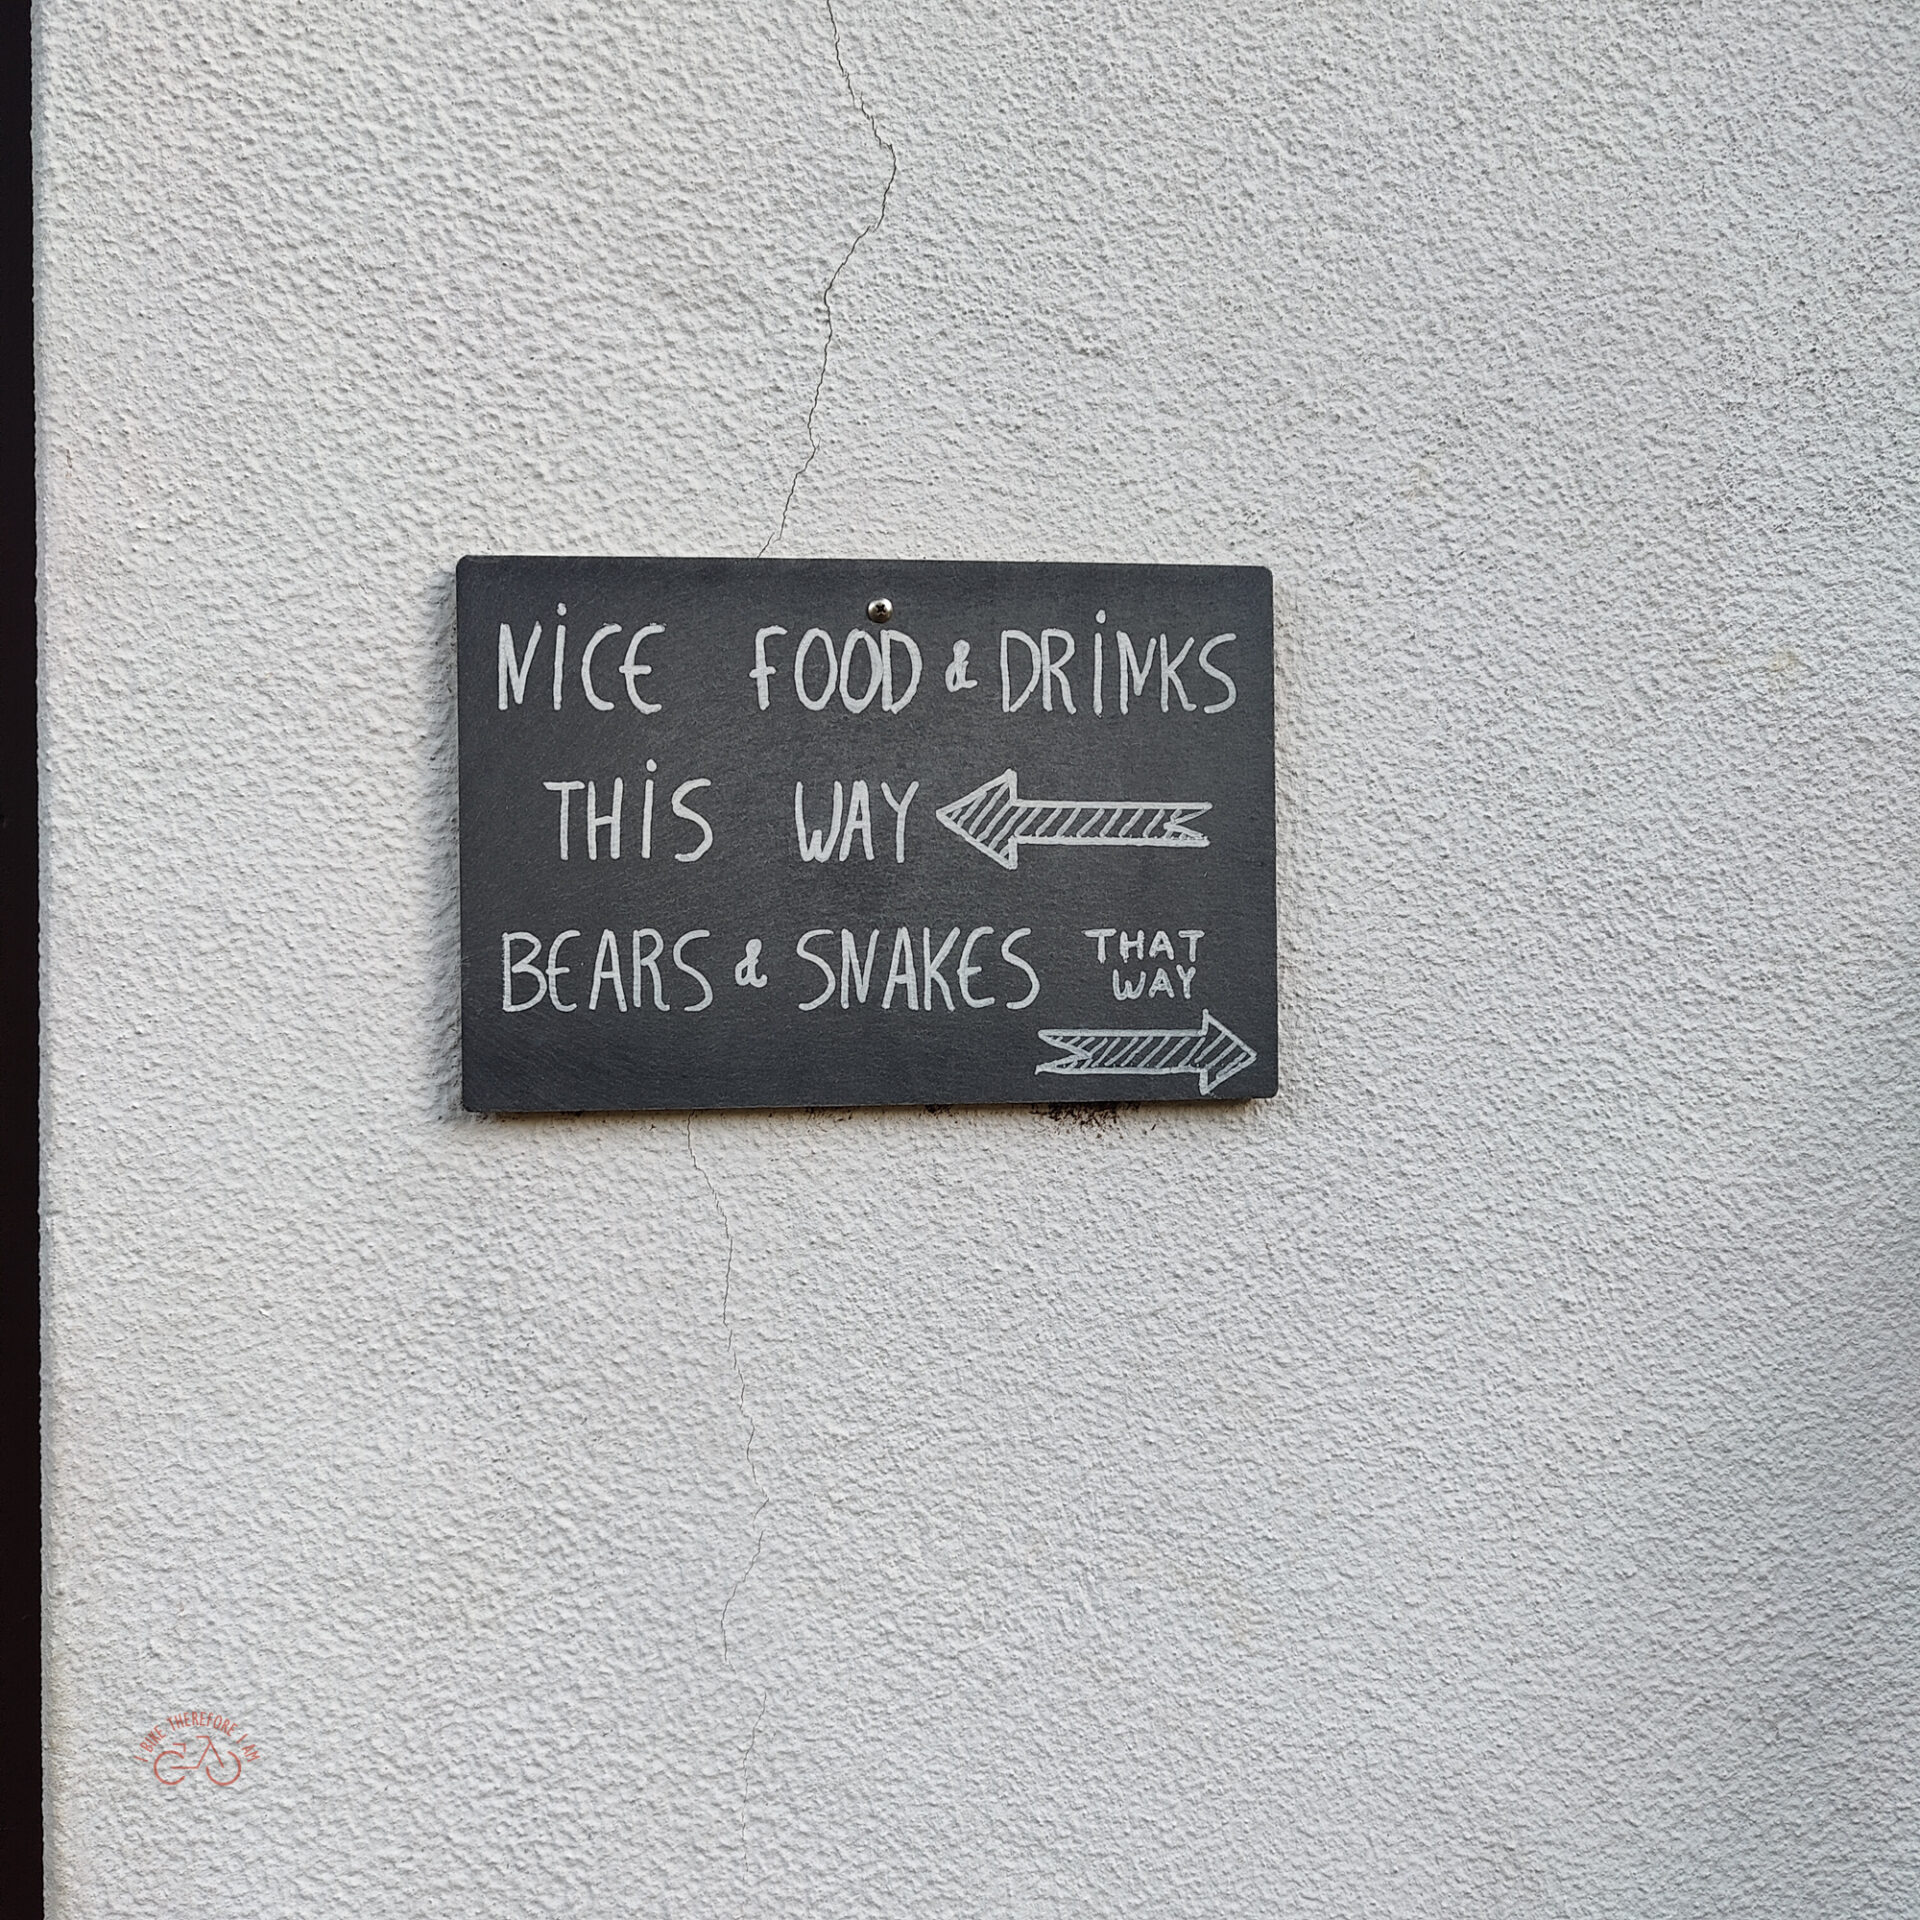 NiCE FOOD & DRiNKS
THiS WAY
BEARS & SNAKES THAT
WAY
I BIKE THEREFORE I AM